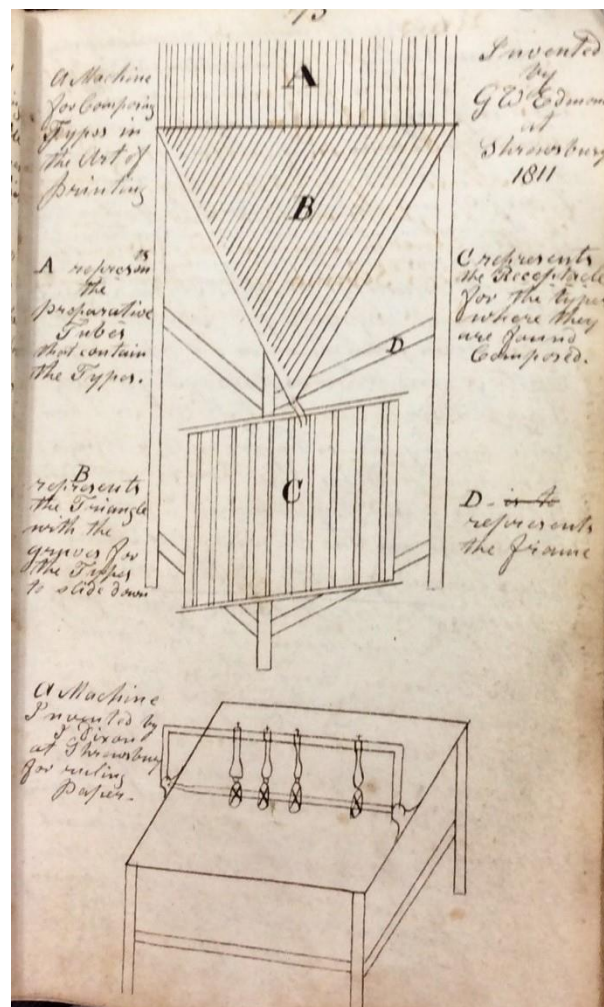 A Machine
for Composing
Types in
the Art of
Printing
Invented
by
G W Edmon
at
Shrewsbury
1811
A
B
C
D
A represents
the
preparative
Tubes
that contain
the Types.
C represents
the Receptacle
for the types
where they
are found
Composed.
B
represents
the Triangle
with the
groves for
the Types
to slide down
D - is to
represents
the frame
A Machine
Invented by
J Dixon
at Shrewsbury
for ruling
Paper.